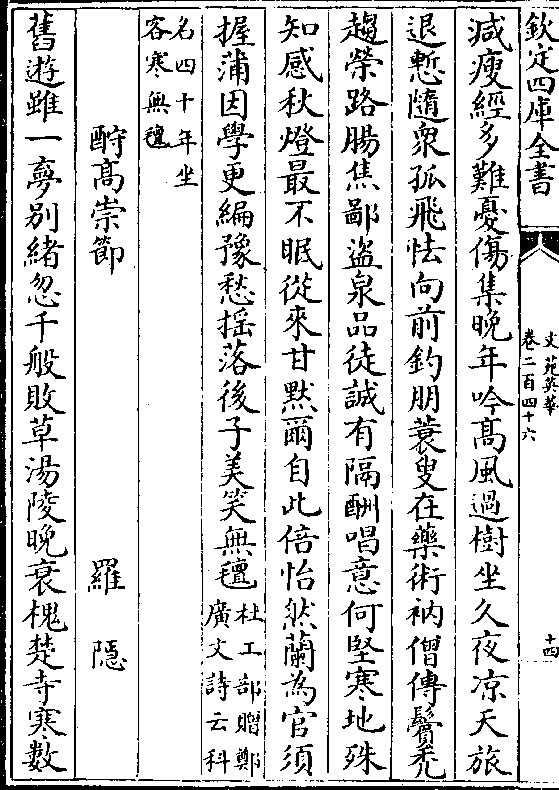 欽定四庫全書
文苑英華
卷二百四十六
十四
減瘦經多難憂傷集晚年吟髙風過樹坐久夜凉天旅
退慙隨衆孤飛怯向前釣朋蓑叟在藥術衲僧傳鬢禿
趨榮路腸焦鄙盜泉品徒誠有隔酬唱意何堅寒地殊
知感秋燈最不眠從來甘黙爾自此倍怡然蘭為官須
握蒲因學更編豫愁揺落後子美笑無氊
杜工部贈鄭
廣文詩云科
名四十年坐
客寒無氊
酧髙崇節
羅隠
舊遊雖一夣别緒忽千般敗草湯陵晚衰槐楚寺寒數